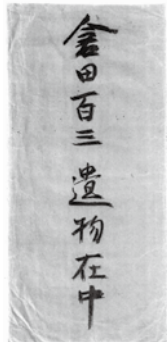 倉田百三遺物在中